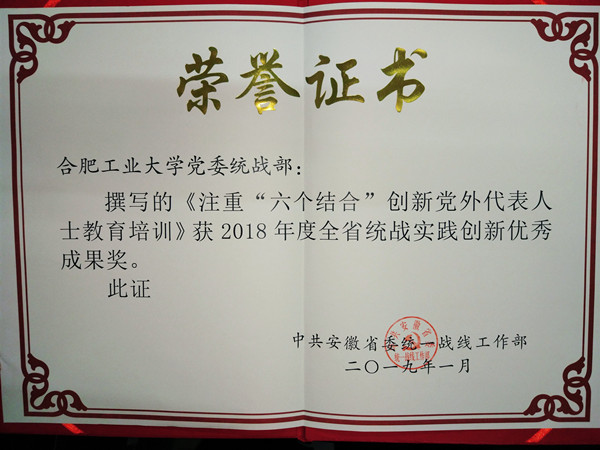 荣誉证书
合肥工业大学党委统战部：
撰写的《注重“六个结合”创新党外代表人
士教育培训》获 2018 年度全省统战实践创新优秀
成果奖。
此证
中共安徽省委统一战线工作部
二〇一九年一月